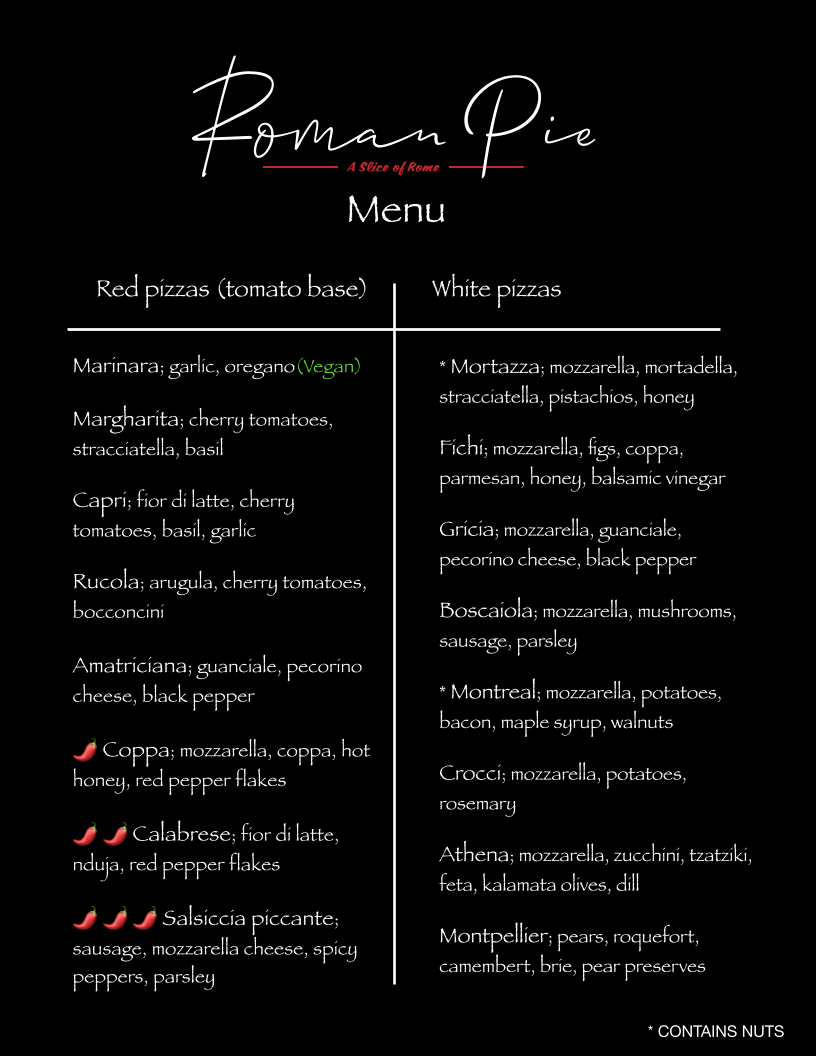 Roman Pie
A Slice of Rome
Menu
Red pizzas (tomato base)
Marinara; garlic, oregano (Vegan)
Margharita; cherry tomatoes,
stracciatella, basil
Capri; fior di latte, cherry
tomatoes, basil, garlic
Rucola; arugula, cherry tomatoes,
bocconcini
Amatriciana; guanciale, pecorino
cheese, black pepper
🌶️ Coppa; mozzarella, coppa, hot
honey, red pepper flakes
🌶️ 🌶️ Calabrese; fior di latte,
nduja, red pepper flakes
🌶️ 🌶️ 🌶️ Salsiccia piccante;
sausage, mozzarella cheese, spicy
peppers, parsley
White pizzas
* Mortazza; mozzarella, mortadella,
stracciatella, pistachios, honey
Fichi; mozzarella, figs, coppa,
parmesan, honey, balsamic vinegar
Gricia; mozzarella, guanciale,
pecorino cheese, black pepper
Boscaiola; mozzarella, mushrooms,
sausage, parsley
* Montreal; mozzarella, potatoes,
bacon, maple syrup, walnuts
Crocci; mozzarella, potatoes,
rosemary
Athena; mozzarella, zucchini, tzatziki,
feta, kalamata olives, dill
Montpellier; pears, roquefort,
camembert, brie, pear preserves
* CONTAINS NUTS